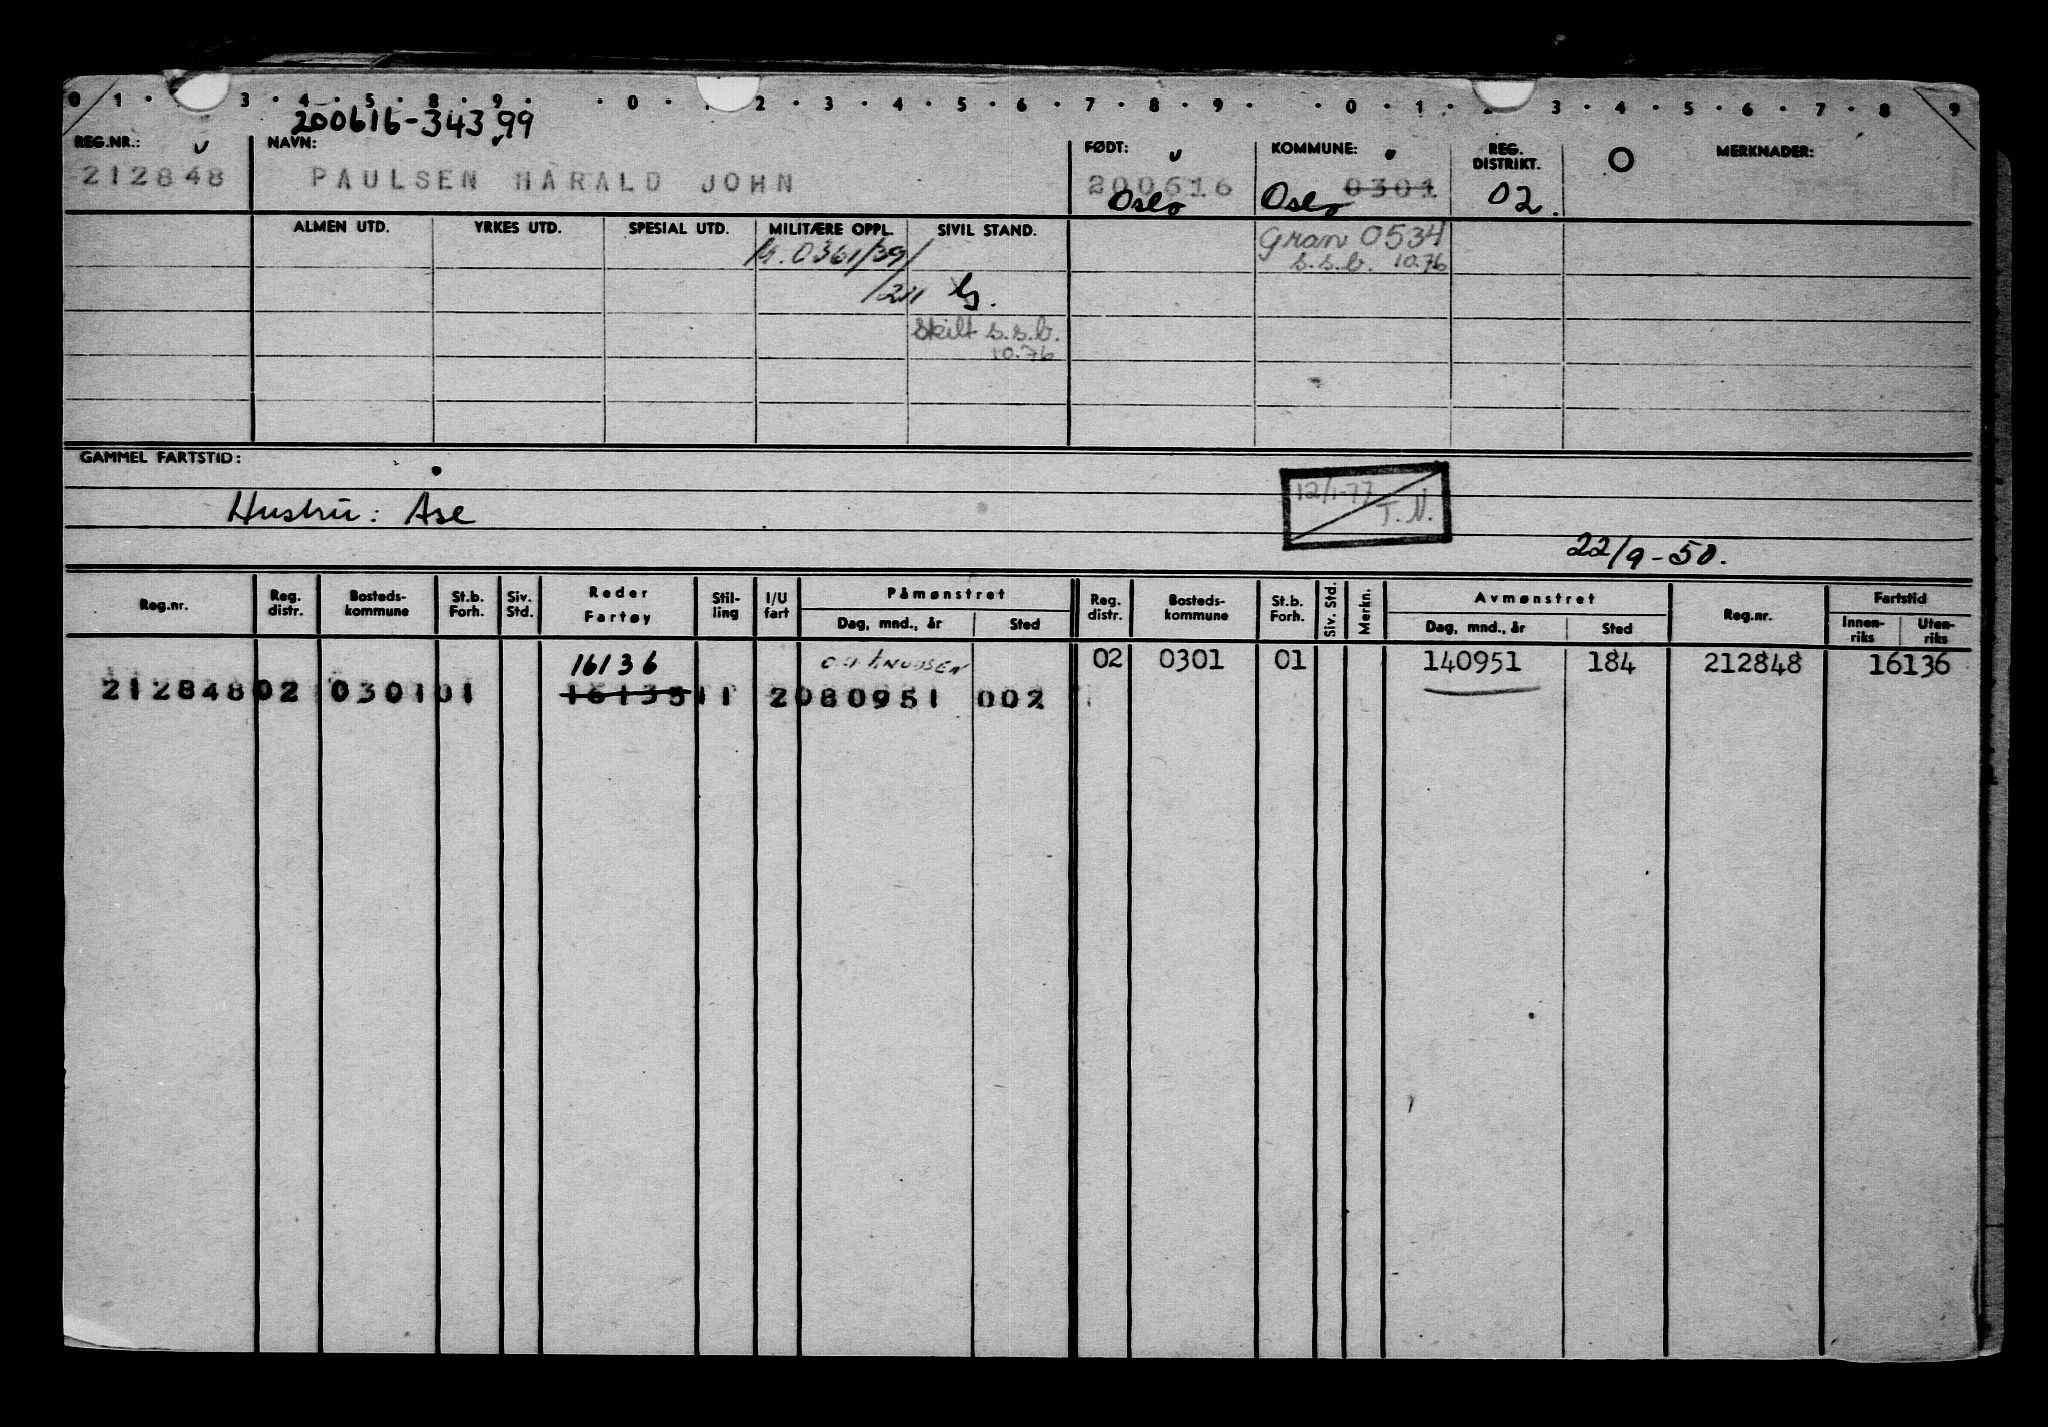 0 1 · 3 · 4 · 5 · 8 · 9 · · 0 · 2 · 3 · 4 · 5 · 6 · 7 · 8 · 9 · · 0 · 1 · 3 · 4 · 5 · 6 · 7 · 8 9
200616-34399
REG.NR.: NAVN: FØDT: KOMMUNE: REG. DISTRIKT. MERKNADER:
212848 PAULSEN HARALD JOHN 200616 0301
Oslo Oslo 02.
ALMEN UTD. YRKES UTD. SPESIAL UTD. MILITÆRE OPPL. SIVIL STAND.
0361/39/ Gran 0534
s.s.b. 10.76
G.
Skilt s.s.b.
10.76
GAMMEL FARTSTID:
12/1-77
T.N.
Hustru: Ase
22/9-50.
Reg.nr. Reg. distr. Bosteds-kommune St.b. Forh. Siv. Std. Reder Fartøy Stil-ling I/U fart Påmønstret Dag, mnd., år Sted Reg. distr. Bosteds-kommune St.b. Forh. Siv. Std. Merkn. Avmønstret Dag, mnd., år Sted Reg.nr. Fartstid Innen-riks Uten-riks
16136 KNUDSEN 02 0301 01 140951 184 212848 16136
212848 02 0301 01 16135 11 2 080951 002